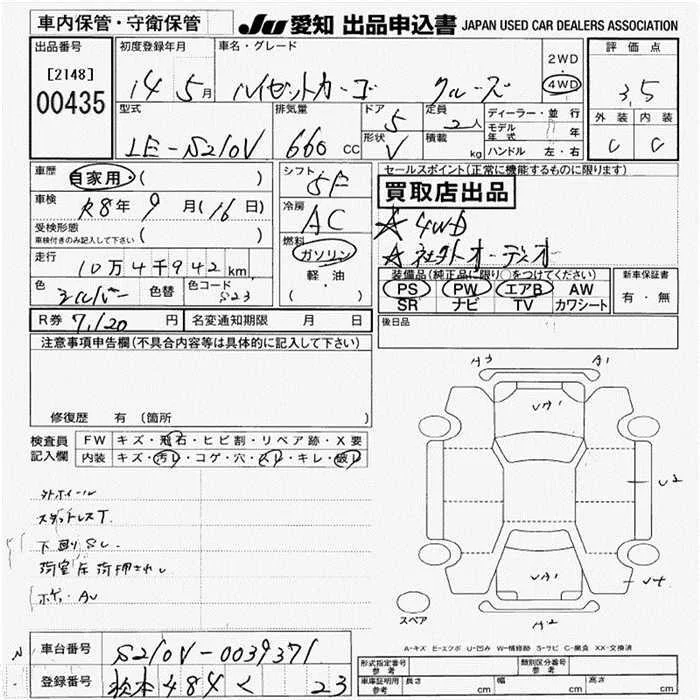 車内保管・守衛保管
JU 愛知 出品申込書 JAPAN USED CAR DEALERS ASSOCIATION
出品番号
[2148]
00435
初度登録年月
14 5月
車名・グレード
ハイゼットカーゴ クルーズ
2WD
4WD
評価点
3.5
外装 内装
C C
型式
LE-S210V
排気量
660 cc
ドア
5
形状
V
定員
2人
積載
kg
ディーラー・並行
モデル年式 年
ハンドル 左・右
車歴
自家用・( )
車検
R8年 9月(16日)
受検形態
車検付きのみ記入して下さい ( )
走行
10万4千942km
色
シルバー
色替
色コード
S23
シフト
5F
冷房
AC
燃料
ガソリン
軽・油
( )
セールスポイント(正常に機能するものに限ります)
買取店出品
☆ 4WD
☆ 社外オーディオ
装備品(純正品に限り○をつけてください)
PS PW エアB AW
SR ナビ TV カワシート
新車保証書
有・無
R券 7,120円
名変通知期限 月 日
後日品
注意事項申告欄(不具合内容等は具体的に記入して下さい)
修復歴 有(箇所 )
検査員記入欄
FW キズ・飛石・ヒビ割・リペア跡・X要
内装 キズ・汚レ・コゲ・穴・スレ・キレ・破レ
外ホイール
スタットレスT.
下廻りSC.
荷室床荷押されし
ボディ・AU
A3 A1
UA1
U2
UA1
U4
A2
スペア
A-キズ E-エクボ U-凹み W-補修跡 S-サビ C-腐食 XX-交換済
車台番号 S210V-0039371
登録番号 松本 484 く 23
形式指定番号 参考
類別区分番号 参考
車庫証明用 参考 長さ cm 幅 cm 高さ cm